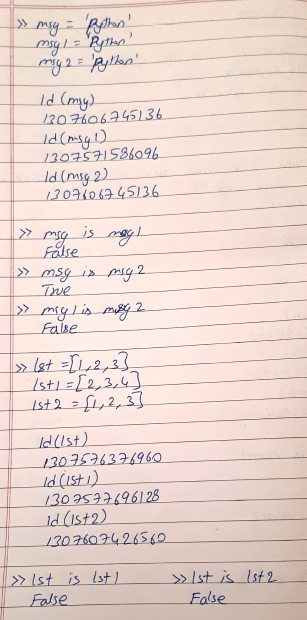 >> msg = 'Python'
msg1 = 'Python'
msg2 = 'Python'
Id(msg)
1307606745136
Id(msg1)
1307571586096
Id(msg2)
1307606745136
>> msg is msg1
False
>> msg is msg2
True
>> msg1 is msg2
False
>> lst = [1,2,3]
lst1 = [2,3,4]
lst2 = [1,2,3]
Id(lst)
1307576376960
Id(lst1)
1307577696128
Id(lst2)
1307607426560
>> lst is lst1 >> lst is lst2
False False